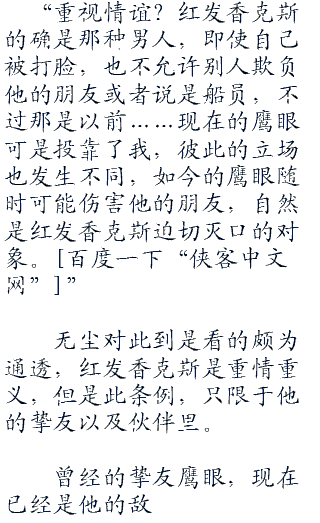 “重视情谊？红发香克斯
的确是那种男人，即使自己
被打脸，也不允许别人欺负
他的朋友或者说是船员，不
过那是以前……现在的鹰眼
可是投靠了我，彼此的立场
也发生不同，如今的鹰眼随
时可能伤害他的朋友，自然
是红发香克斯迫切灭口的对
象。[百度一下“侠客中文
网”]”
无尘对此到是看的颇为
通透，红发香克斯是重情重
义，但是此条例，只限于他
的挚友以及伙伴里。
曾经的挚友鹰眼，现在
已经是他的敌